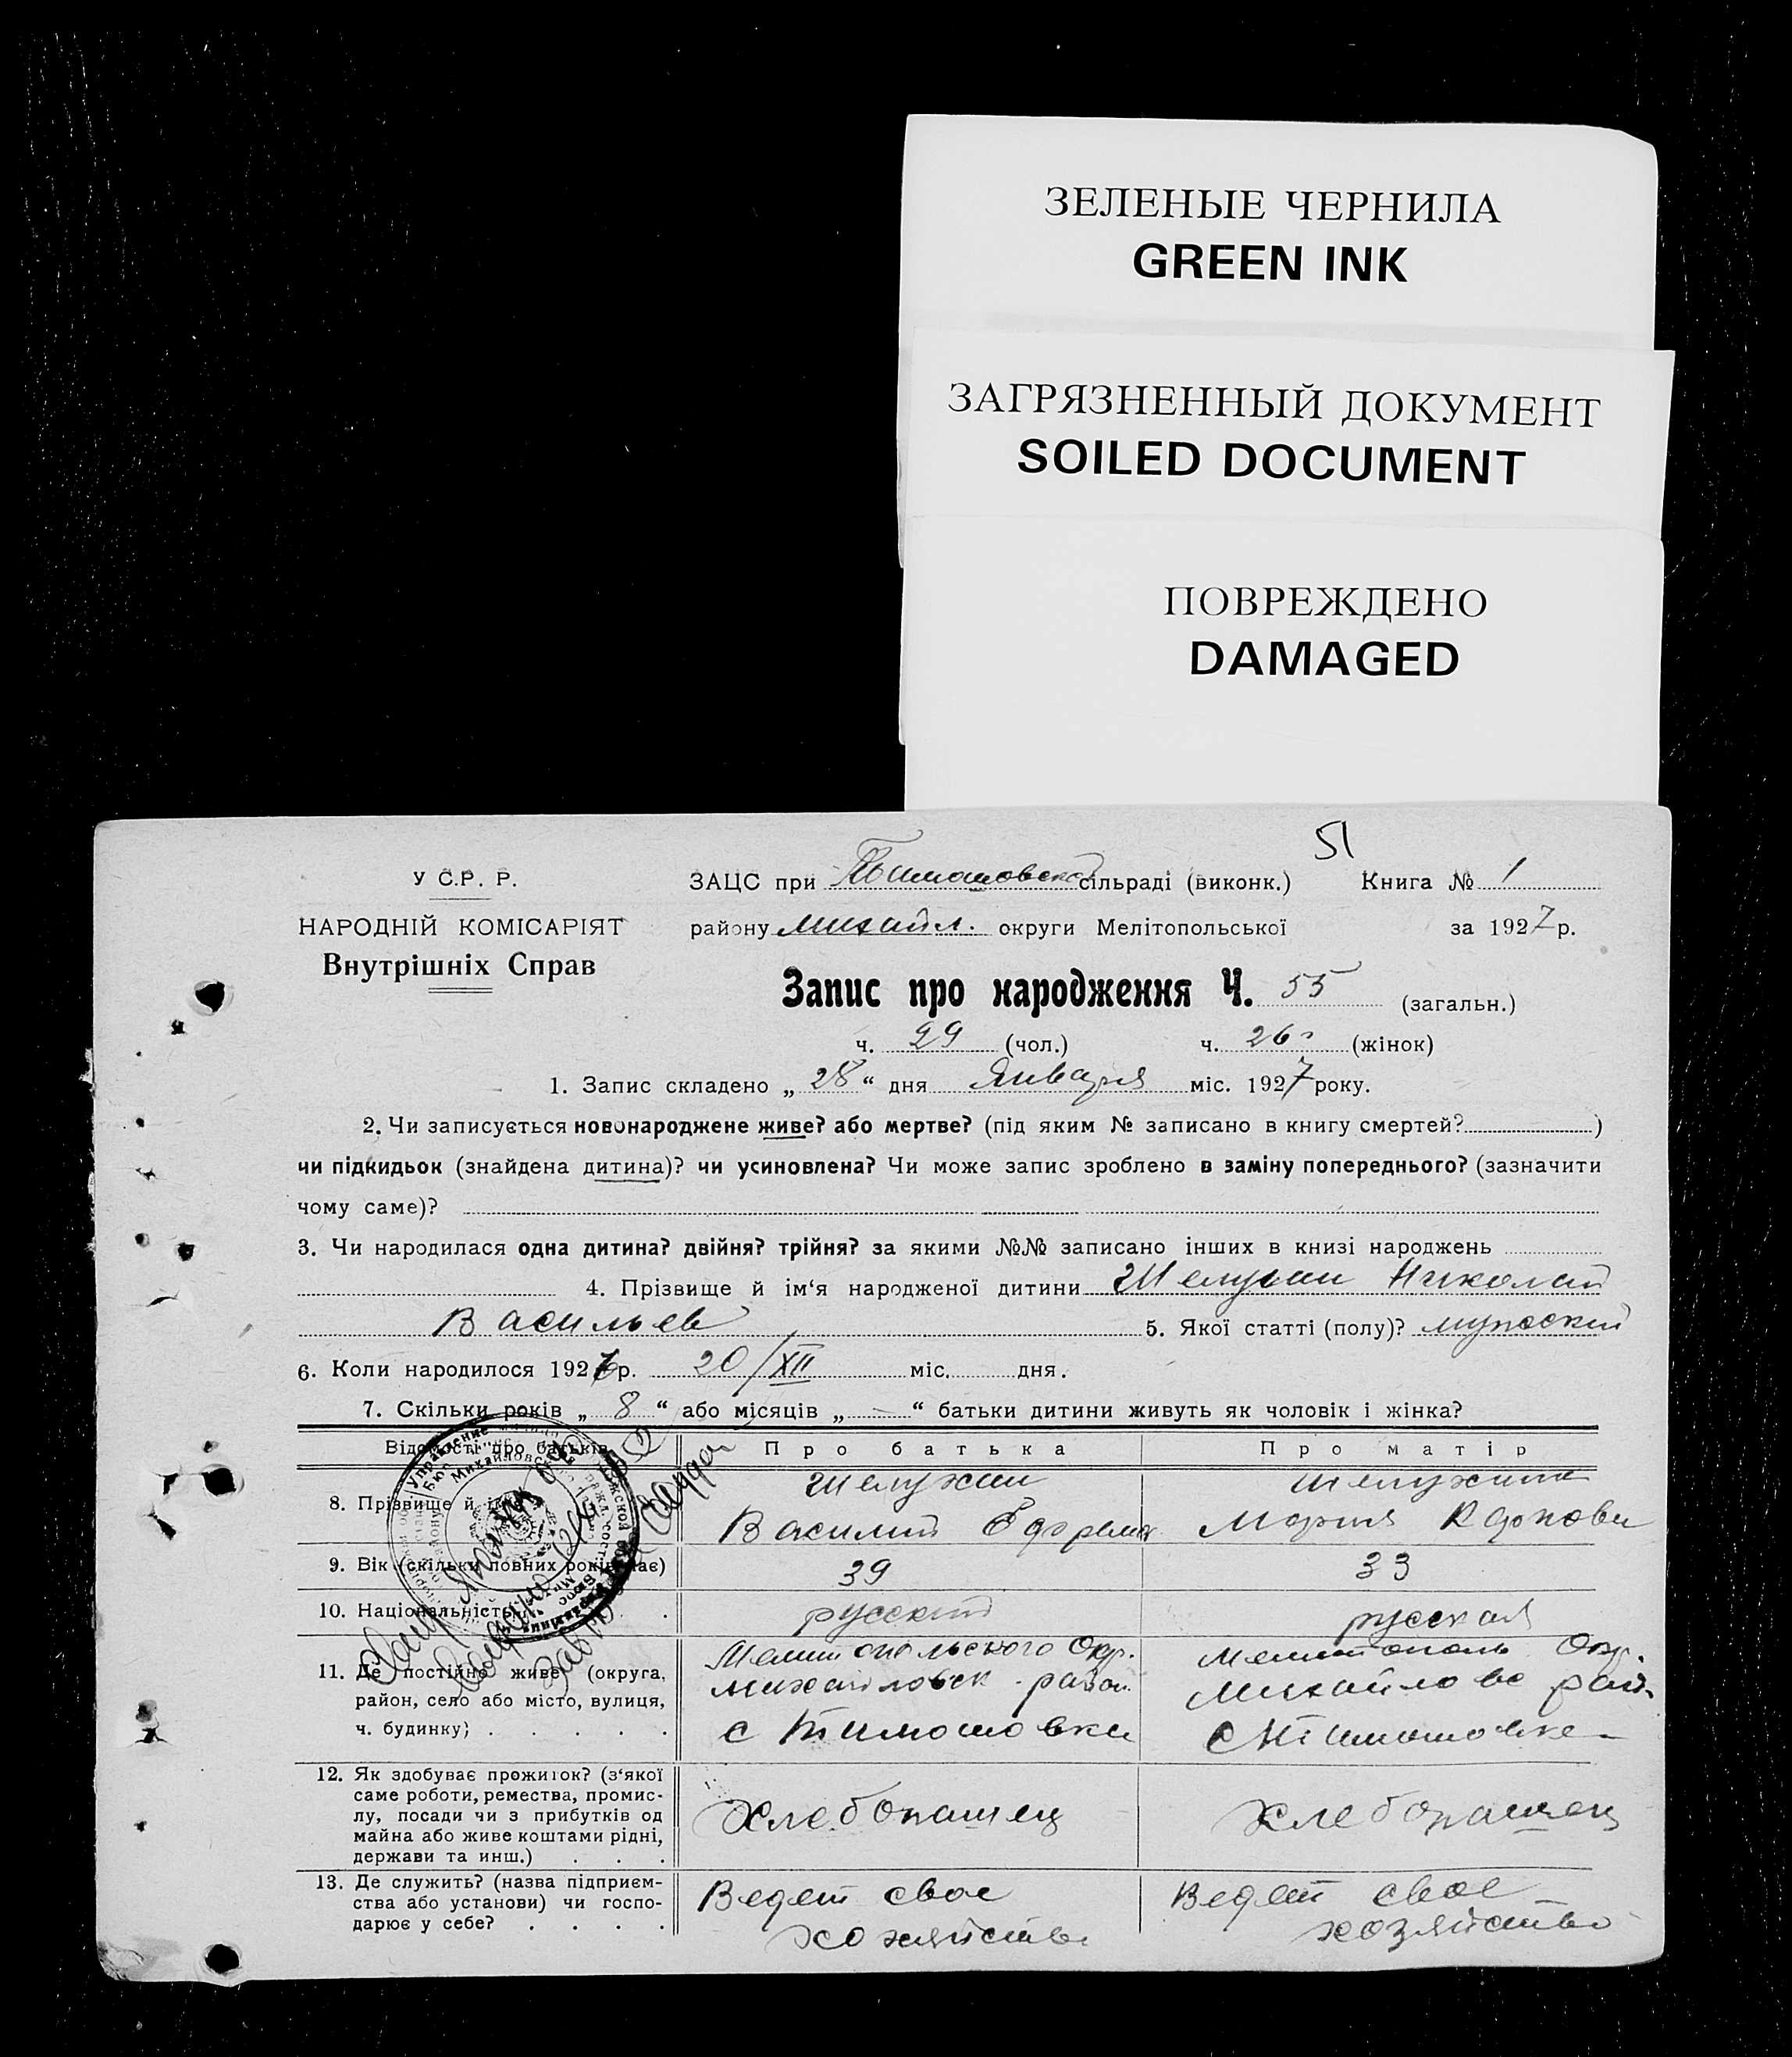 ЗЕЛЕНЫЕ ЧЕРНИЛА
GREEN INK
ЗАГРЯЗНЕННЫЙ ДОКУМЕНТ
SOILED DOCUMENT
ПОВРЕЖДЕНО
DAMAGED
51
У С.Р. Р.
НАРОДНІЙ КОМІСАРІЯТ
Внутрішніх Справ
ЗАЦС при Тимошовской сільраді (виконк.) Книга № 1
району Михайл. округи Мелітопольської за 1927 р.
Запис про народження Ч. 55 (загальн.)
ч. 29 (чол.) ч. 26 (жінок)
1. Запис складено „ 28 “ дня Января міс. 1927 року.
2. Чи записується новонароджене живе? або мертве? (під яким № записано в книгу смертей? )
чи підкидьок (знайдена дитина)? чи усиновлена? Чи може запис зроблено в заміну попереднього? (зазначити
чому саме)?
3. Чи народилася одна дитина? двійня? трійня? за якими №№ записано інших в книзі народжень
4. Прізвище й ім‘я народженої дитини Шелухин Николай
Васильев 5. Якої статті (полу)? мужской
6. Коли народилося 1926 р. 20/XII міс. дня.
7. Скільки років „ 8 “ або місяців „ — “ батьки дитини живуть як чоловік і жінка?
Відомості про батьків Про батька Про матір
8. Прізвище й ім‘я Шелухин Шелухина
Василий Ефрем Мария Карпови
9. Вік (скільки повних років має) 39 33
10. Національність русский русская
11. Де постійно живе (округа, Мелитопольского Окр. Мелитополь Окр.
район, село або місто, вулиця, михайловск. район Михайловс рай.
ч. будинку) с Тимошовки с Тимошовке
12. Як здобуває прожиток? (з‘якої
саме роботи, ремества, промис-
лу, посади чи з прибутків од Хлебопашец хлебопашец
майна або живе коштами рідні,
держави та инш.)
13. Де служить? (назва підприєм- Ведет свое Ведет свое
ства або установи) чи госпо- хозяйство хозяйство
дарює у себе?